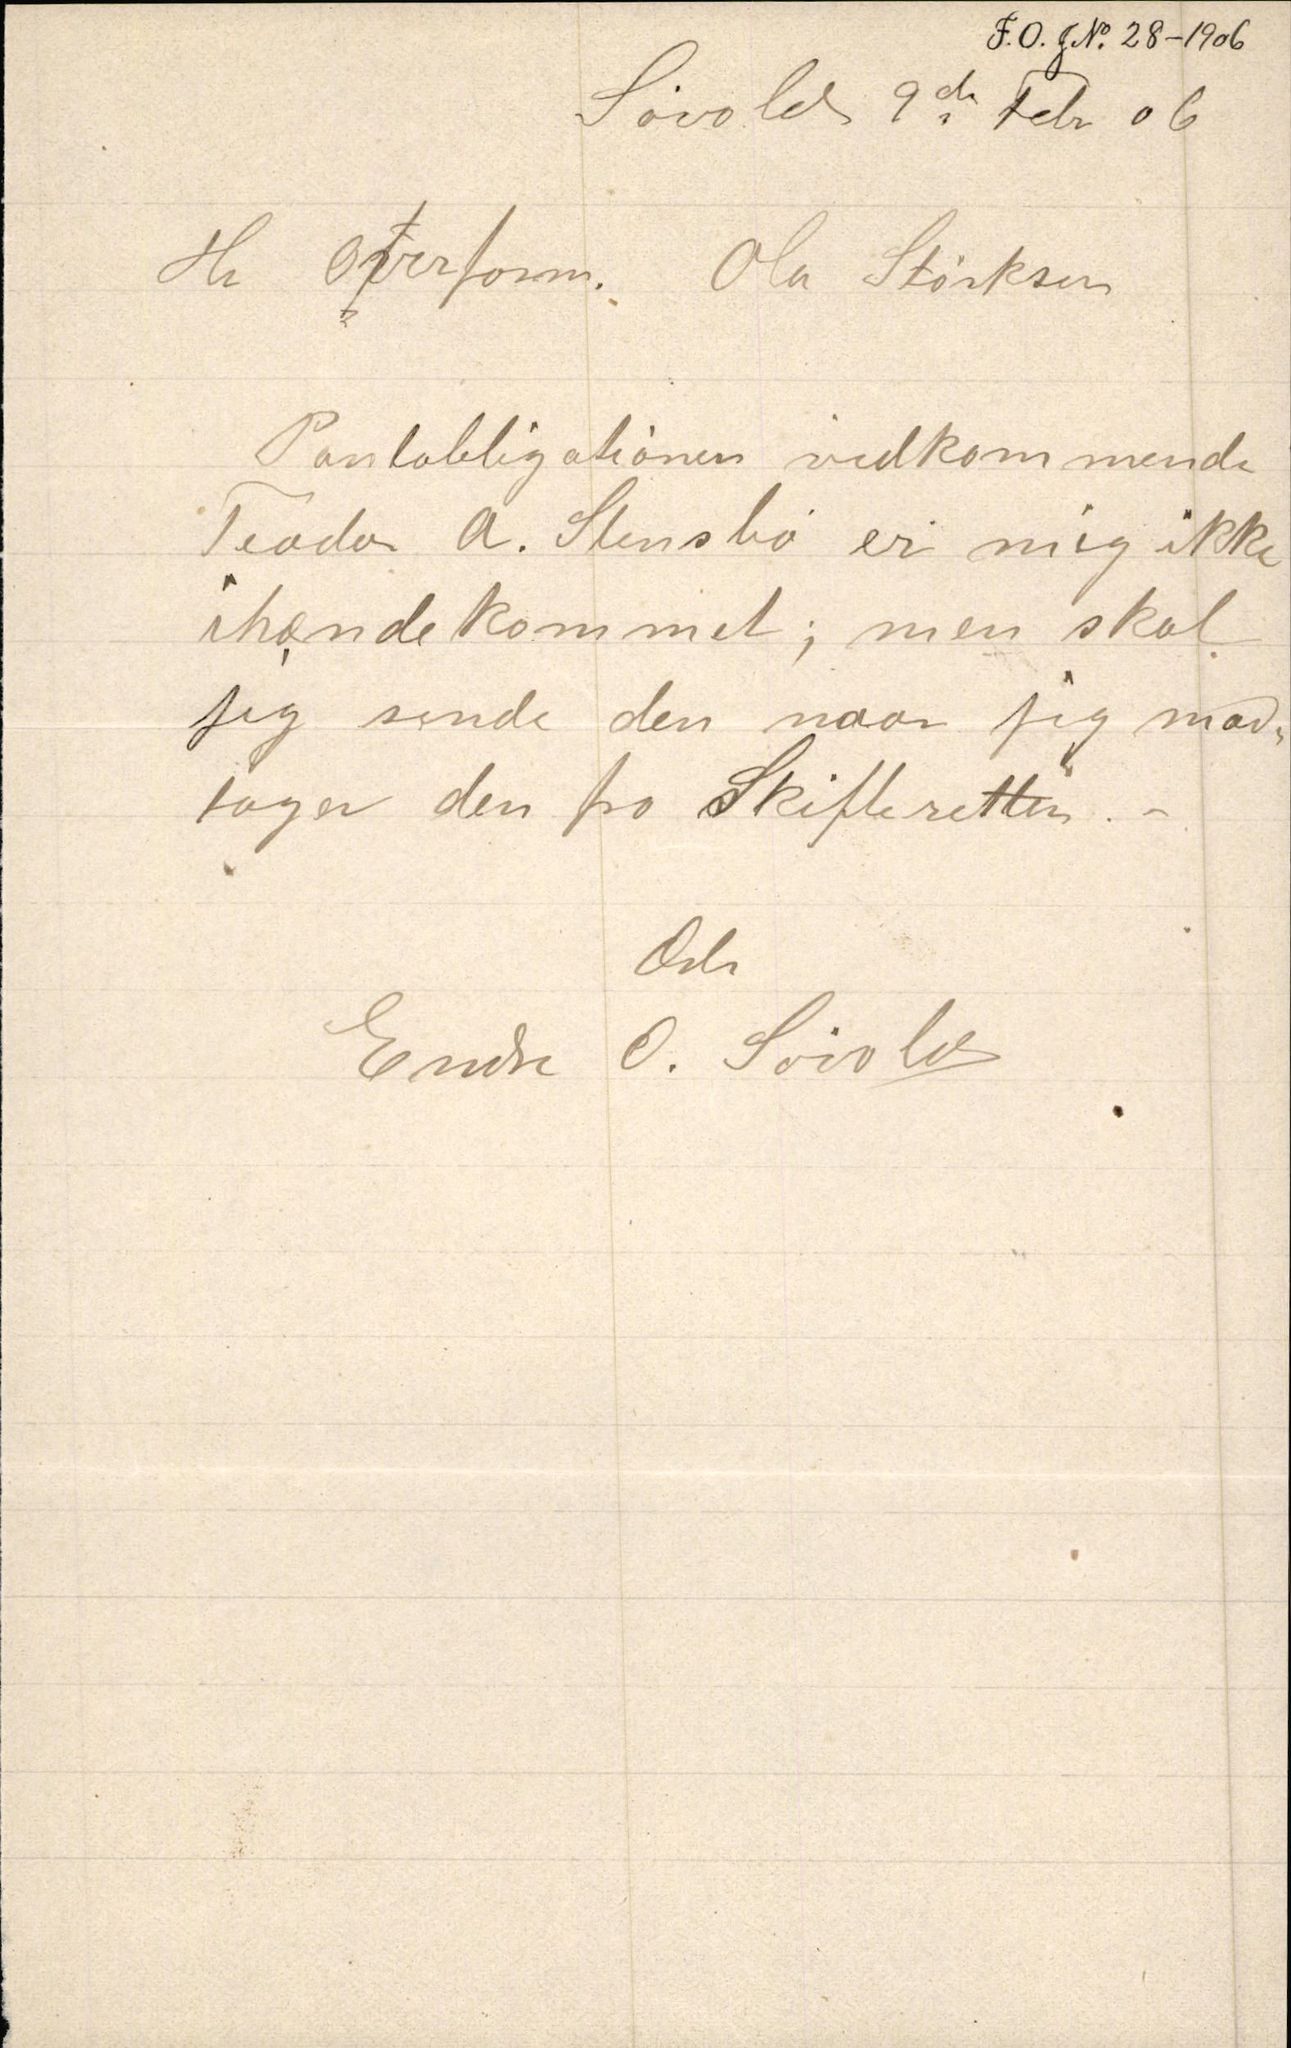 F.O. J.No. 28-1906
Søvold 9de Febr 06
Hr Overform. Ola Størksen
Pantobligationen vedkommende
Teodor A. Stensbø er mig ikke
ihændekommet; men skal
jeg sende den naar jeg mod-
tager den fra Skifteretten. -
Erb
Endre O. Søvold